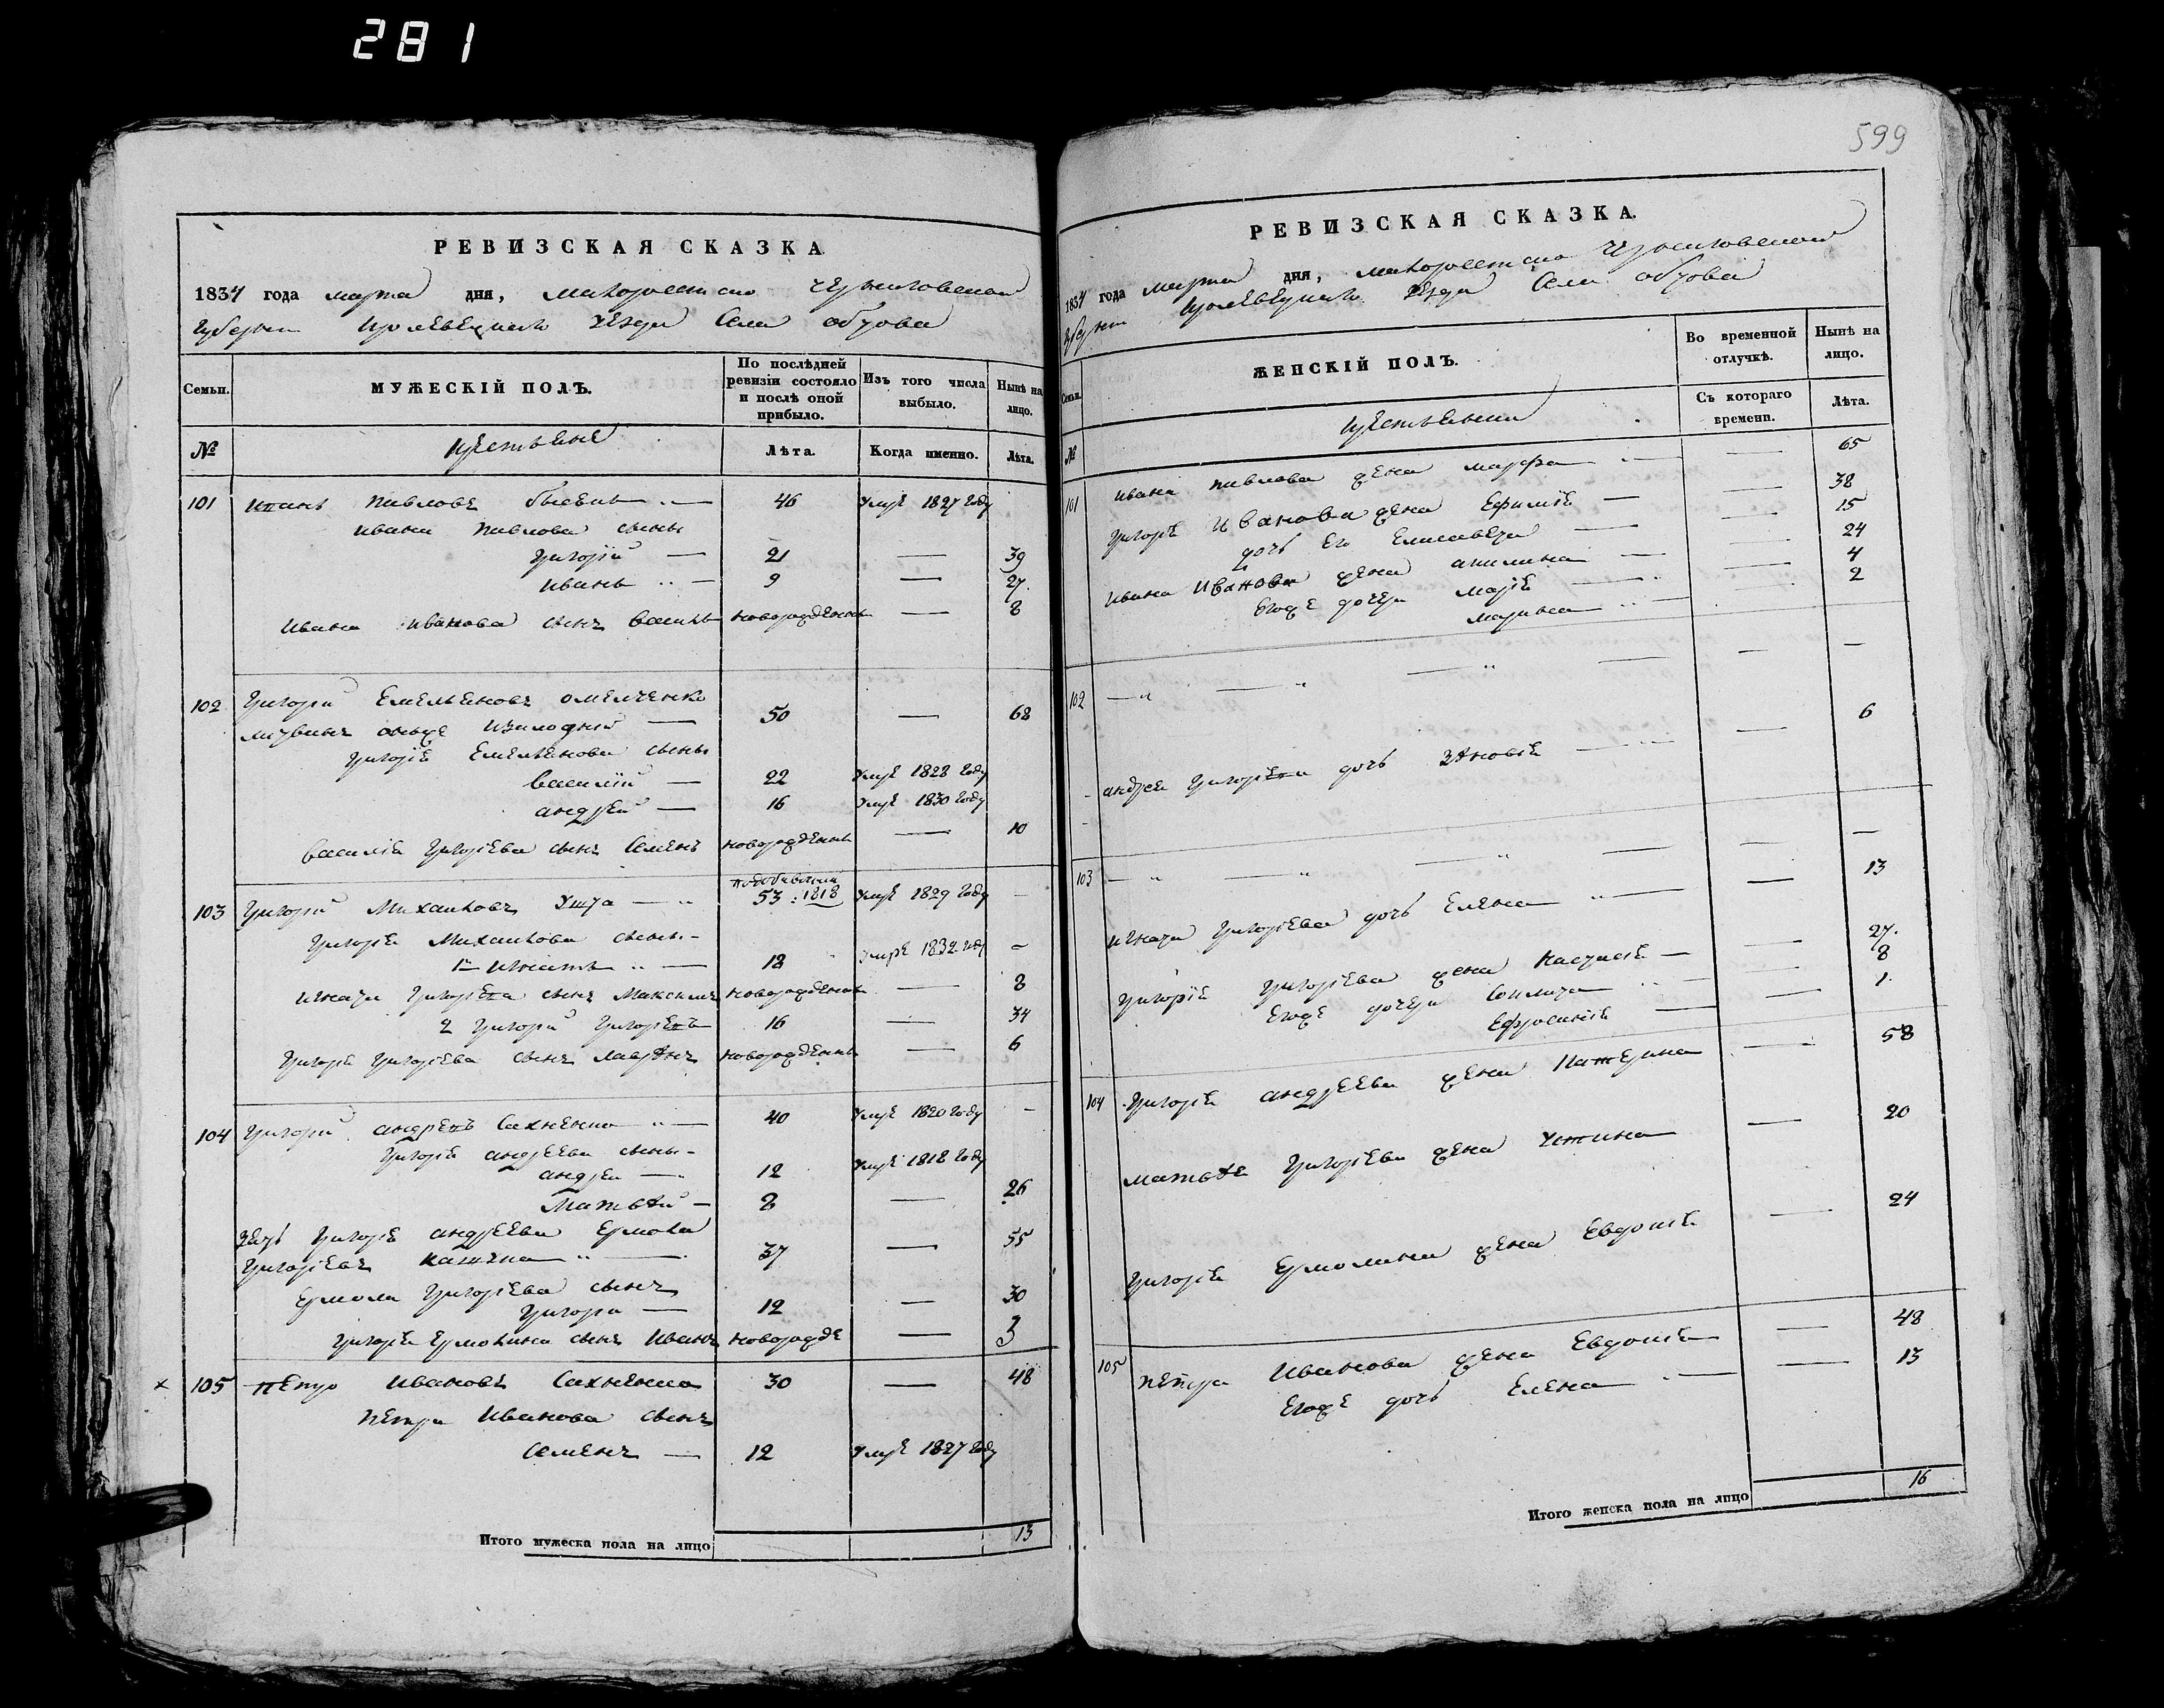 281
599
РЕВИЗСКАЯ СКАЗКА
1834 года марта дня, малоросийско Черниговской
Губерни Кролевецкаго уезда Села обтова
Семьи.
МУЖЕСКІЙ ПОЛЪ.
По послѣдней ревизіи состояло и послѣ оной прибыло.
Изъ того числа выбыло.
Нынѣ на лицо.
№
Лѣта.
Когда именно.
Лѣта.
101 Иванъ Павловъ 46 умре 1827 году
Ивана Павлова сыны
Григорій — 21 — 39
Иванъ — 9 — 27
Ивана Иванова сынъ Василь новорожденны — 8
102 Григорій Емельяновъ Омелченко
50 — 68
Григорія Емельянова сыны
Василій — 22 умре 1828 году
Андрей — 16 умре 1830 году
Василія Григоріева сынъ Семенъ новорожденны — 10
103 Григорій Михаиловъ 53 : 1818 умре 1829 году —
Григорія Михаилова сыны
1й Игнатъ — 18 умре 1832 году —
Игната Григоріева сынъ Максимъ новорожденны — 8
2 Григорій Григоріевъ 16 — 34
Григорія Григоріева сынъ новорожденны — 6
104 Григорій Андреевъ Сахненко — 40 умре 1820 году —
Григорія Андреева сыны
Андрей — 12 умре 1818 году
Матвѣй — 8 — 26
зять Григорія Андреева Ермола
Григоріевъ — 37 — 55
Ермолы Григоріева сынъ
Григорій — 12 — 30
Григорія Ермолина сынъ Иванъ новорожде — 3
105 Петро Ивановъ Сахненко 30 — 48
Петра Иванова сынъ
Семенъ — 12 умре 1827 году
Итого мужеска пола на лицо 13
РЕВИЗСКАЯ СКАЗКА.
1834 года марта дня, малоросийско Черниговской
Губерни Кролевецкаго уезда Села обтова
Семьи.
ЖЕНСКІЙ ПОЛЪ.
Во временной отлучкѣ.
Нынѣ на лицо.
Съ котораго времени.
Лѣта.
№
101 Ивана Павлова жена Марфа — 65
Григорія Иванова жена Ефимія — 38
дочь Его Елисавета — 15
Ивана Иванова жена Акилина — 24
Егоже дочери Марія — 4
Марина — 2
102 — „ — „ — „ — — —
Андрея Григоріева дочь Зѣновія — 6
103 — „ — „ — „ — — —
Игната Григоріева дочь Елена — 13
Григорія Григоріева жена Настасія — 27
Егоже дочери — 8
Ефросинія — 1
104 Григорія Андреева жена Катерина — 58
Матвѣя Григоріева жена Устина — 20
Григорія Ермолина жена Евдокія — 24
105 Петра Иванова жена Евдокія — 48
Егоже дочь Елена — 13
Итого женска пола на лицо 16